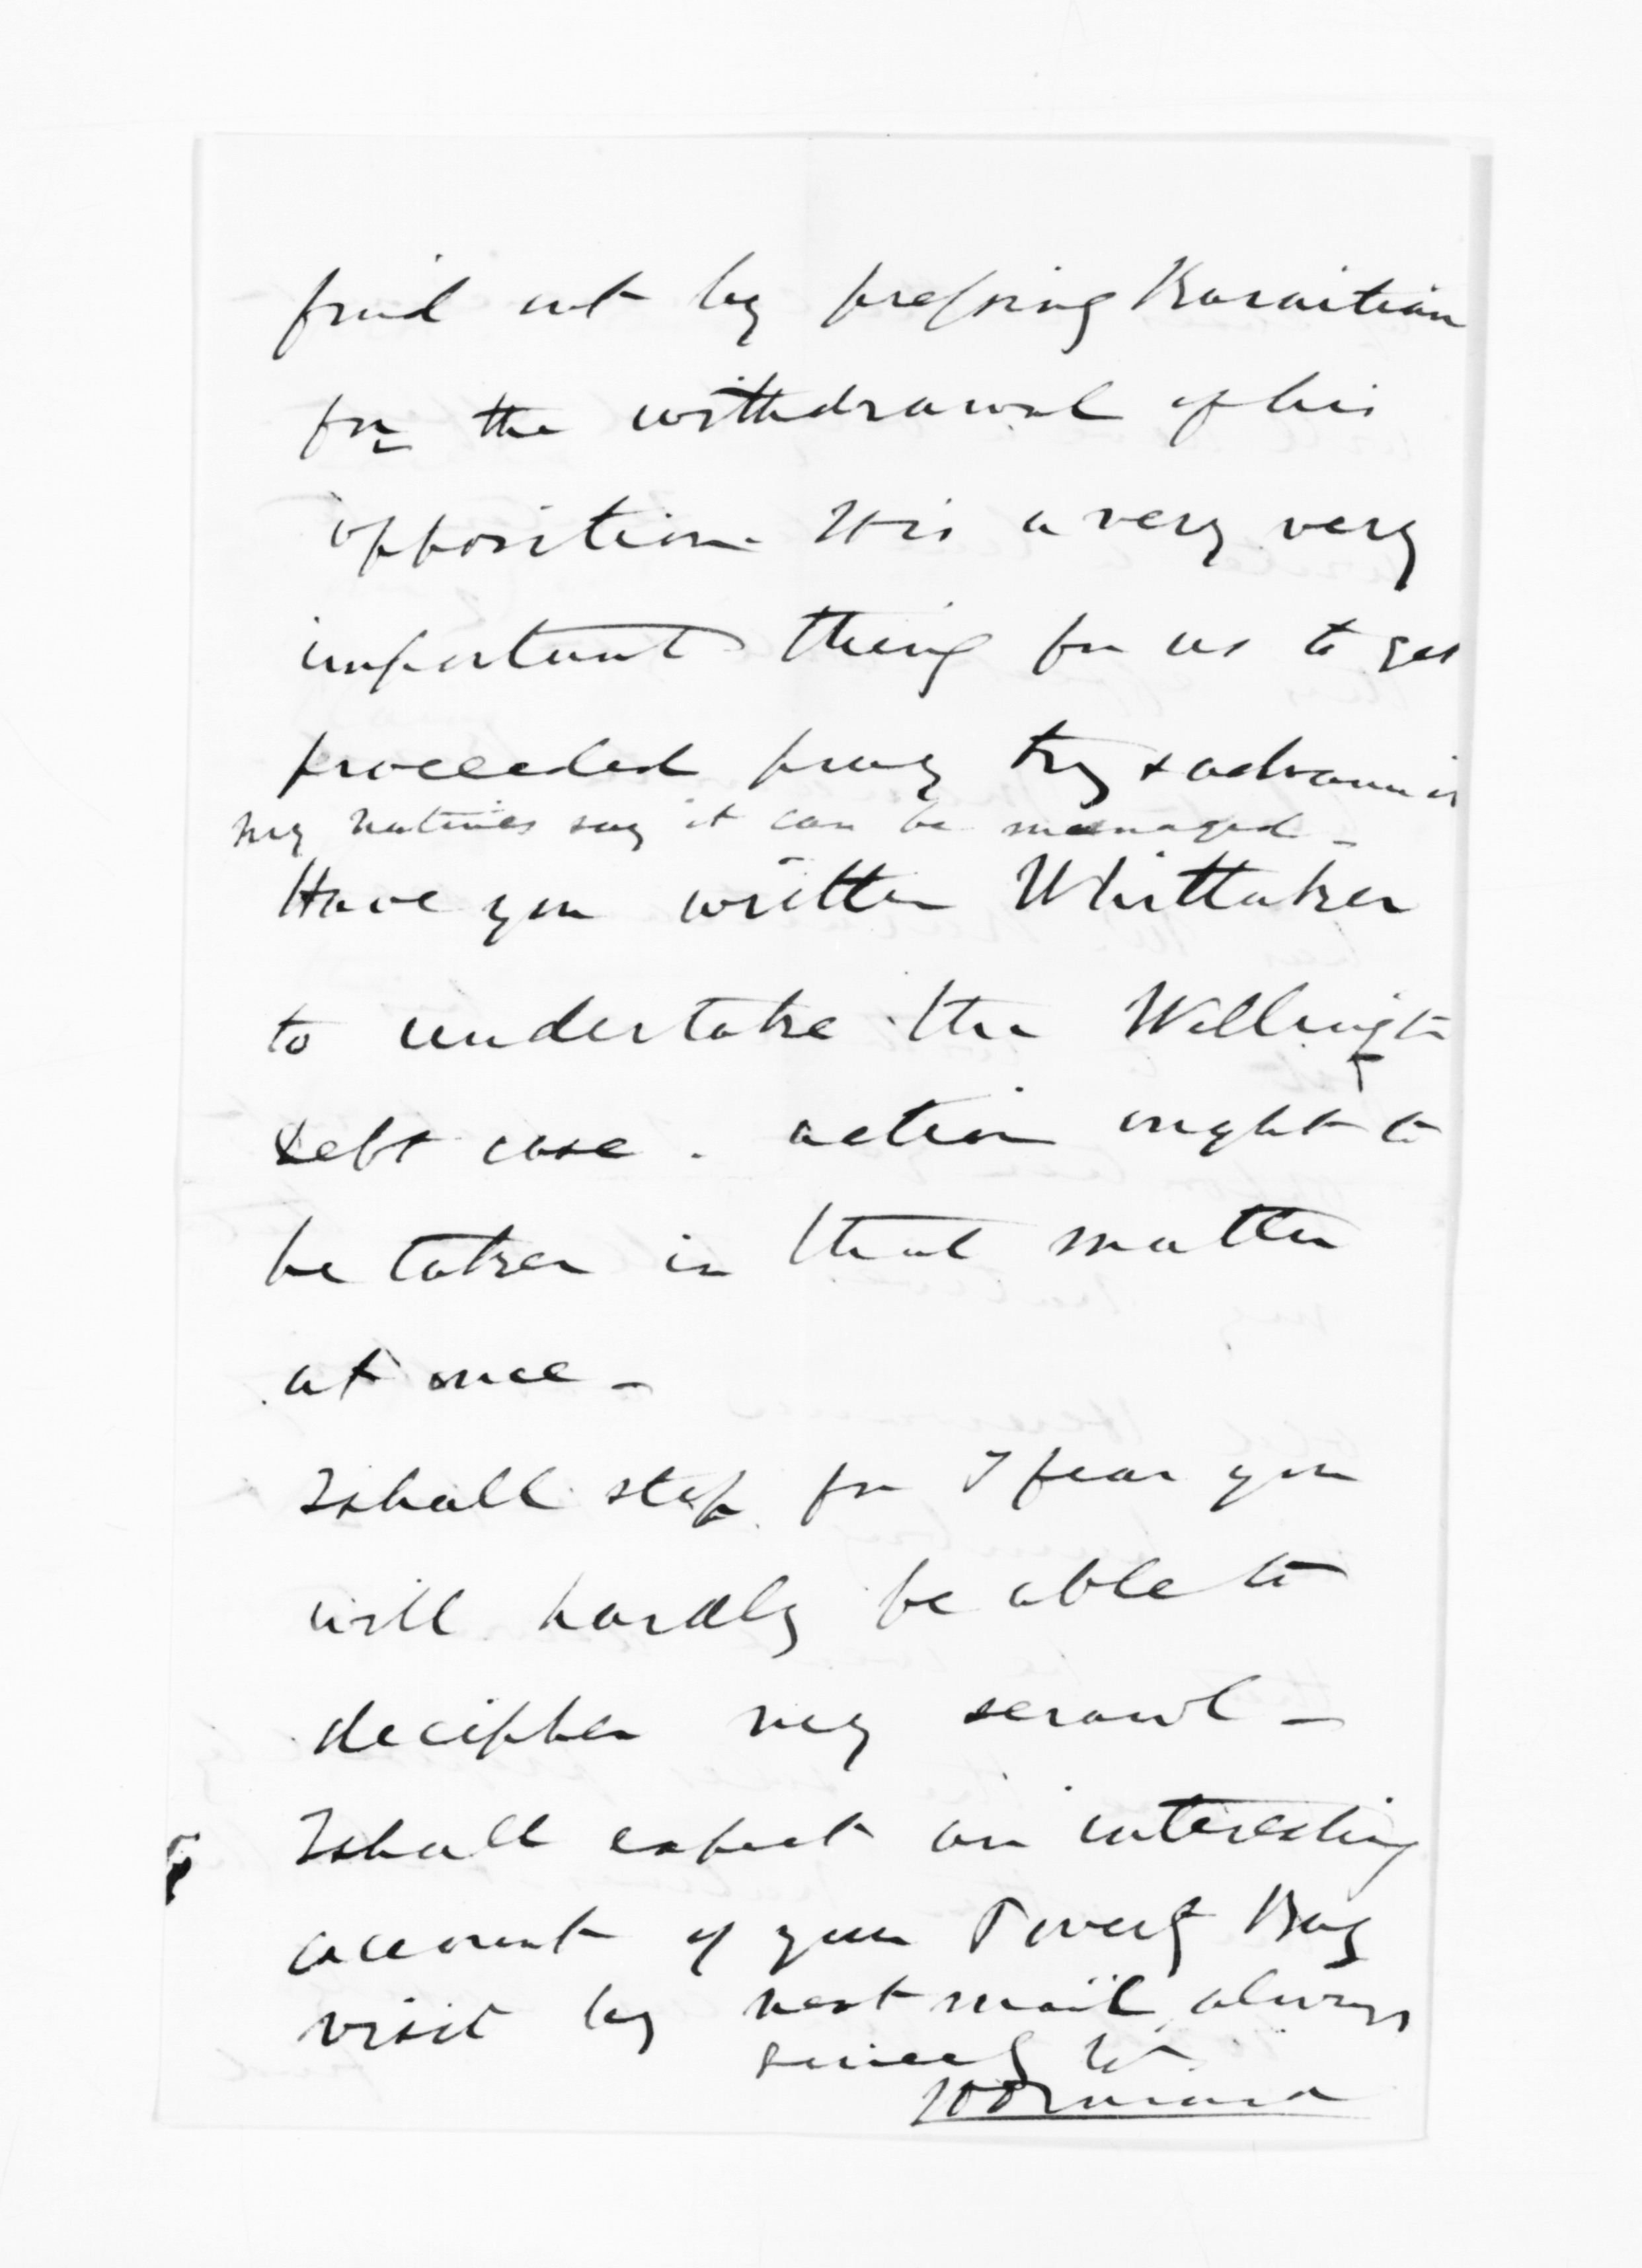 find out by pressing Karaitian
for the withdrawal of his
opposition. It is a very very
important thing for us to get
proceeded pray try &
my natives say it can be managed -
Have you written Whittaker
to undertake the Wellington
debt case. action ought to
be taken in that matter
at once -
I shall stop for I fear you
will hardly be able to
decipher my scrawl -
I shall expect an interesting
account of your Poverty Bay
visit by next mail, always